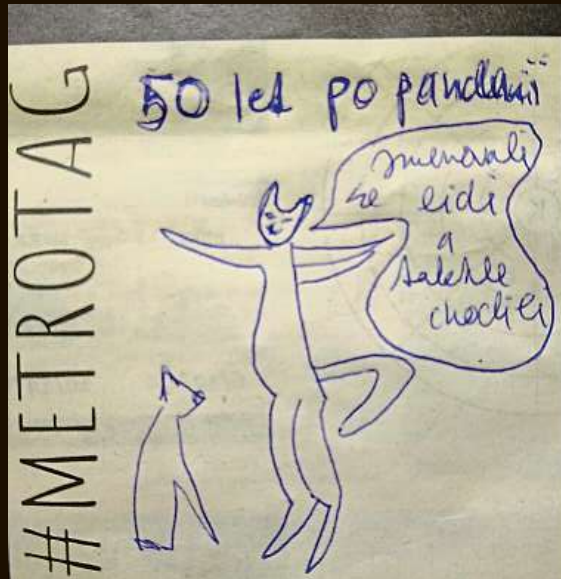 #METROTAG
50 let po pandemii
jmenovali
se lidi
a
takhle
chodili